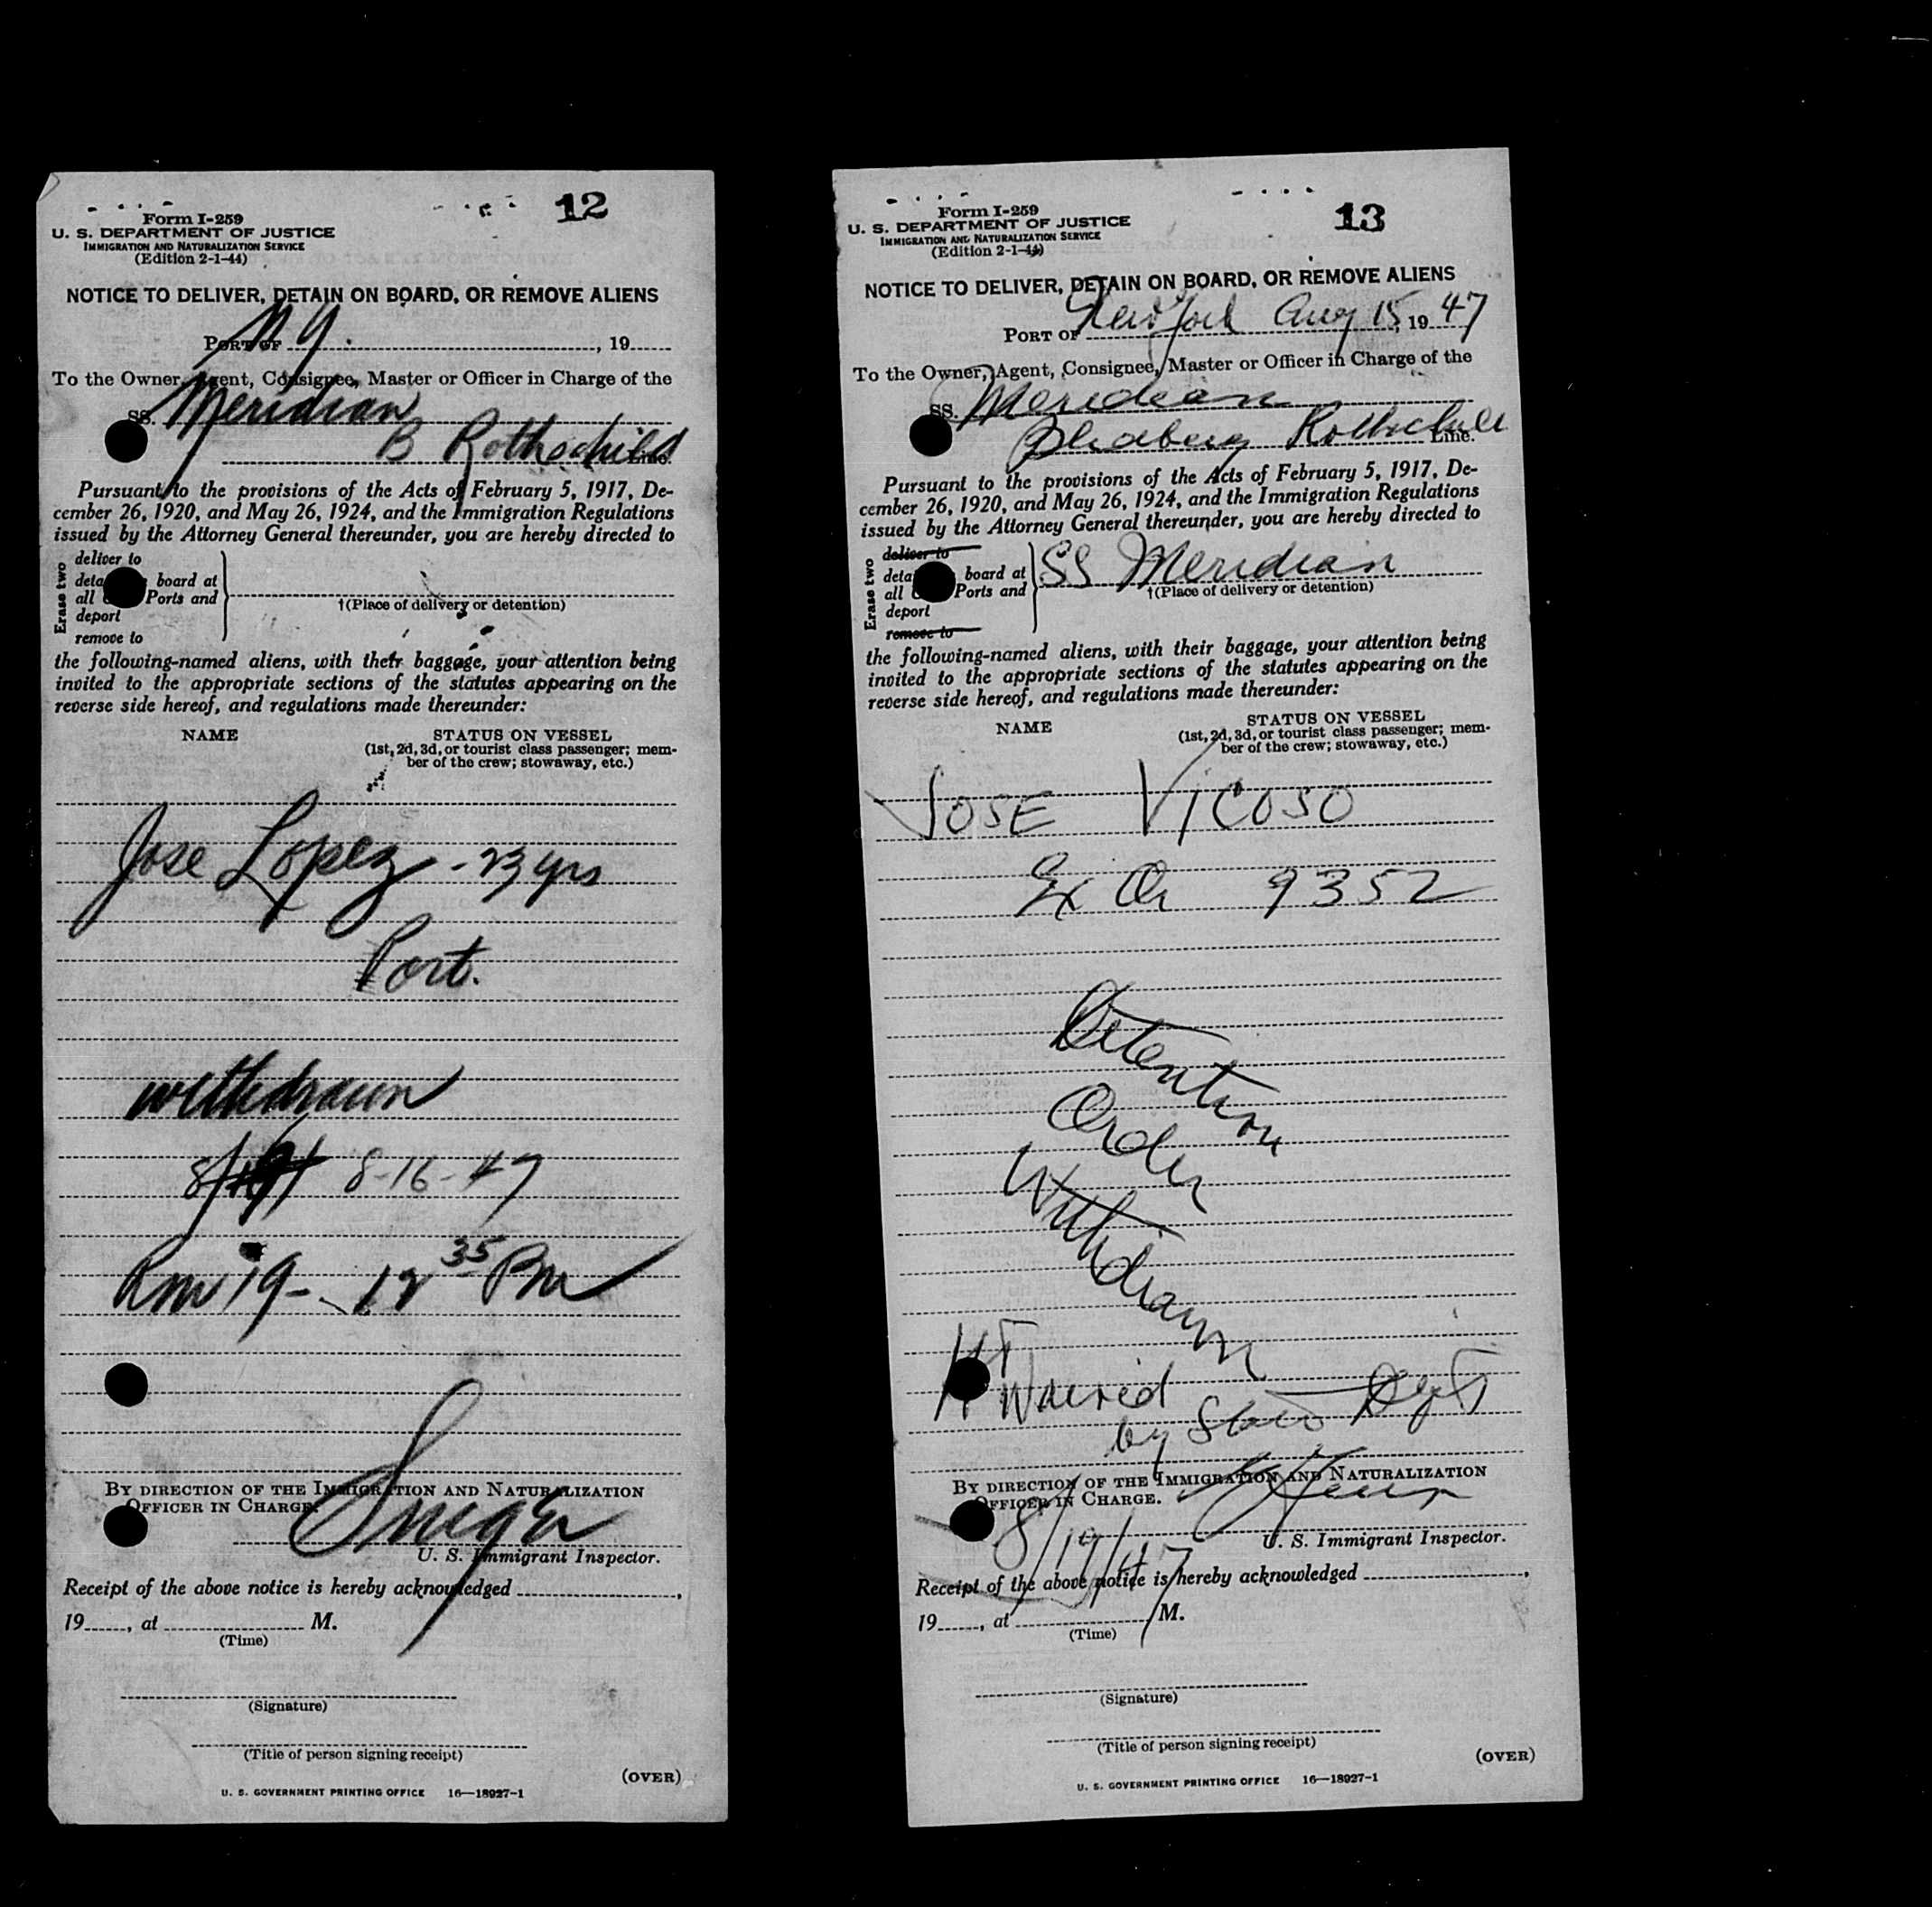 12
Form I-259
U. S. DEPARTMENT OF JUSTICE
IMMIGRATION AND NATURALIZATION SERVICE
(Edition 2-1-44)
NOTICE TO DELIVER, DETAIN ON BOARD, OR REMOVE ALIENS
PORT OF N Y. , 19
To the Owner, Agent, Consignee, Master or Officer in Charge of the
SS. Meridian
B Rothschild Line.
Pursuant to the provisions of the Acts of February 5, 1917, De-
cember 26, 1920, and May 26, 1924, and the Immigration Regulations
issued by the Attorney General thereunder, you are hereby directed to
Erase two
deliver to
board at
all Ports and
deport
remove to
†(Place of delivery or detention)
the following-named aliens, with their baggage, your attention being
invited to the appropriate sections of the statutes appearing on the
reverse side hereof, and regulations made thereunder:
NAME STATUS ON VESSEL
(1st, 2d, 3d, or tourist class passenger; mem-
ber of the crew; stowaway, etc.)
Jose Lopez - 23 yrs
Port.
withdrawn
8-16-47
12 35 PM
BY DIRECTION OF THE IMMIGRATION AND NATURALIZATION
OFFICER IN CHARGE.
U. S. Immigrant Inspector.
Receipt of the above notice is hereby acknowledged ,
19 , at M.
(Time)
(Signature)
(Title of person signing receipt)
(OVER)
U. S. GOVERNMENT PRINTING OFFICE 16—18927-1
13
Form I-259
U. S. DEPARTMENT OF JUSTICE
IMMIGRATION AND NATURALIZATION SERVICE
(Edition 2-1-44)
NOTICE TO DELIVER, DETAIN ON BOARD, OR REMOVE ALIENS
PORT OF New York Aug 15, 1947
To the Owner, Agent, Consignee, Master or Officer in Charge of the
SS. Meridian
Rothschild Line.
Pursuant to the provisions of the Acts of February 5, 1917, De-
cember 26, 1920, and May 26, 1924, and the Immigration Regulations
issued by the Attorney General thereunder, you are hereby directed to
Erase two
deliver to
board at
all Ports and
deport
remove to
SS Meridian
†(Place of delivery or detention)
the following-named aliens, with their baggage, your attention being
invited to the appropriate sections of the statutes appearing on the
reverse side hereof, and regulations made thereunder:
NAME STATUS ON VESSEL
(1st, 2d, 3d, or tourist class passenger; mem-
ber of the crew; stowaway, etc.)
JOSE VICOSO
Ex Or 9352
Detention
Order
Withdrawn
Waived
by State Dept
BY DIRECTION OF THE IMMIGRATION AND NATURALIZATION
OFFICER IN CHARGE.
8/19/47
U. S. Immigrant Inspector.
Receipt of the above notice is hereby acknowledged ,
19 , at M.
(Time)
(Signature)
(Title of person signing receipt)
(OVER)
U. S. GOVERNMENT PRINTING OFFICE 16—18927-1